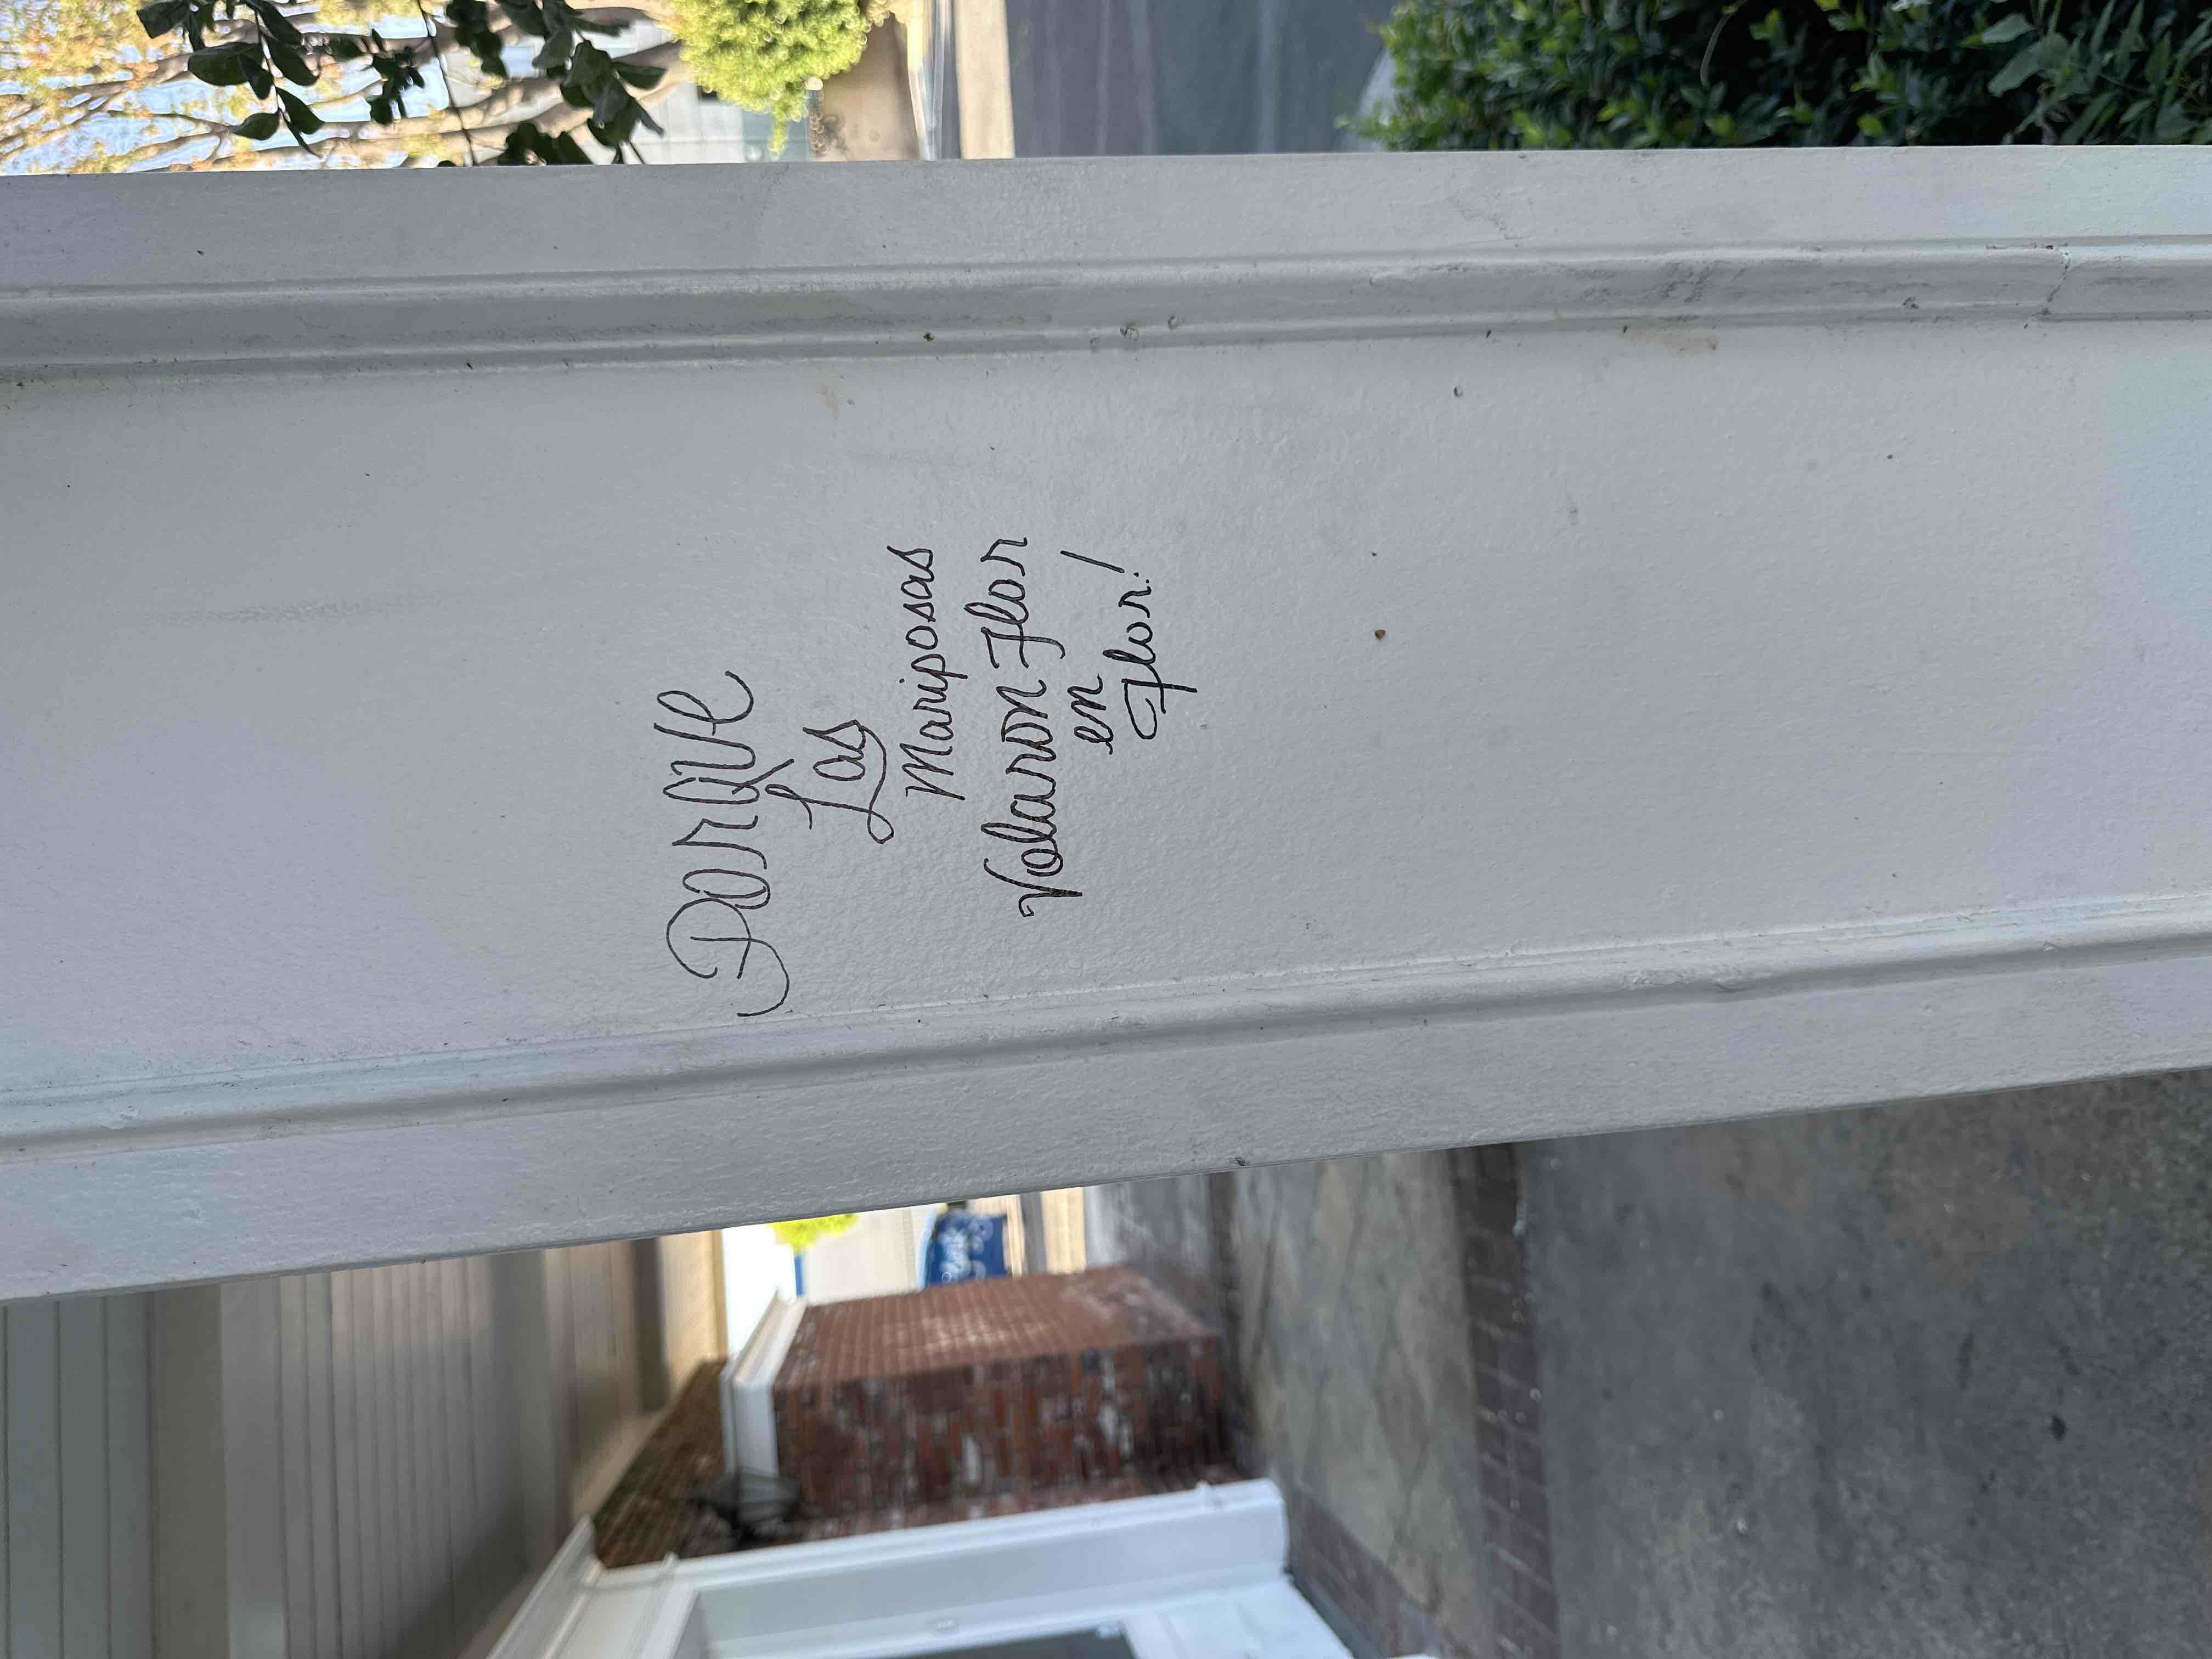 Porque
Las
Mariposas
Volaron Flor
en
Flor!